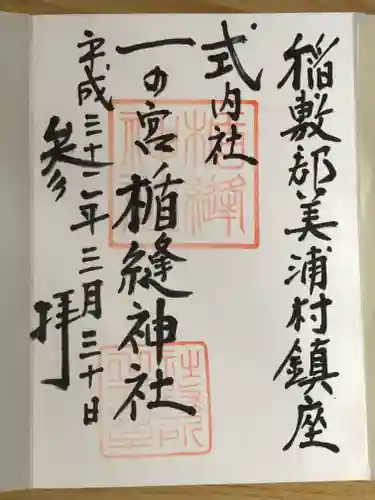 稲敷郡美浦村鎮座
式内社
一の宮楯縫神社
平成三十一年三月三十日
参拝
楯縫神社